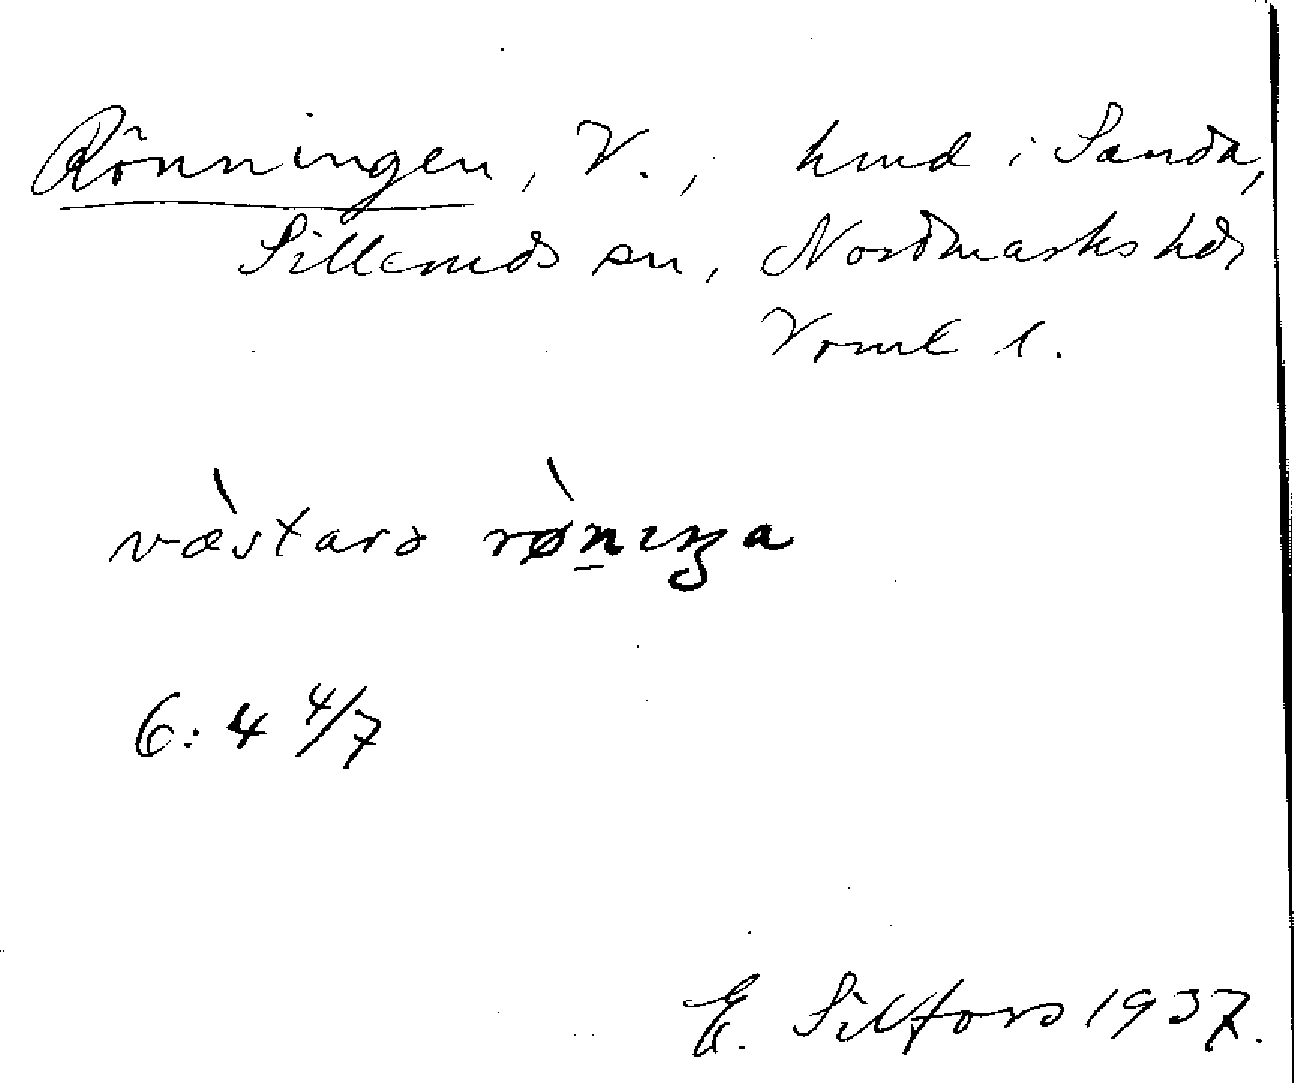 Rönningen, V., hmd i Sanda,
Silleruds sn, Nordmarks hdr
Vrml l.
væ̀stara rø̀nıŋa
6:4 4/7
E. Silfors 1937.